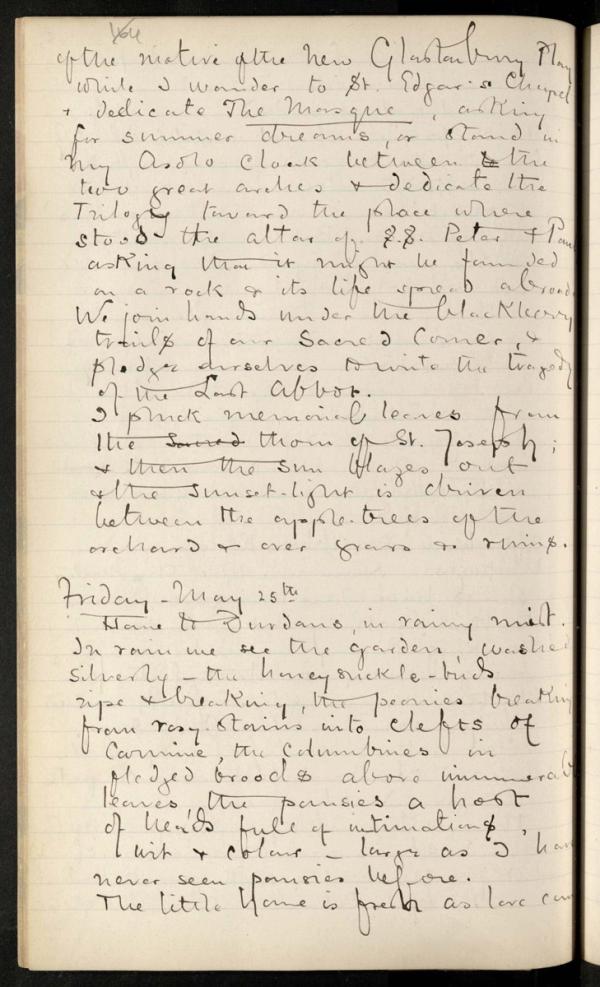 of the motive of the new Glastonbury Play
while I wander to St. Edgar's Chapel
& dedicate The Masque, asking
for summer dreams, or stand in
my Asolo cloak between the
two great arches & dedicate the
Trilogy toward the place where
stood the altar of S.S. Peter & Paul
asking that it might be founded
on a rock & its life spread abroad.
We join hands under the blackberry
trails of our Sacred Corner, &
pledge ourselves to write the tragedy
of the Last Abbot.
I pluck memorial leaves from
the Sacred thorn of St. Joseph;
& then the sun blazes out
& the sunset-light is driven
between the apple-trees of the
orchard & over grass & ruins.
Friday - May 25th
Home to Durdans, in rainy mist.
In rain we see the garden, washed
silverly - the honeysuckle-buds
ripe & breaking, the peonies breaking
from rosy stains into clefts of
Carmine, the Columbines in
fledged broods above innumerable
leaves, the pansies a host
of heads full of intimations,
wit & colour - large as I have
never seen pansies before.
The little home is fresh as love can